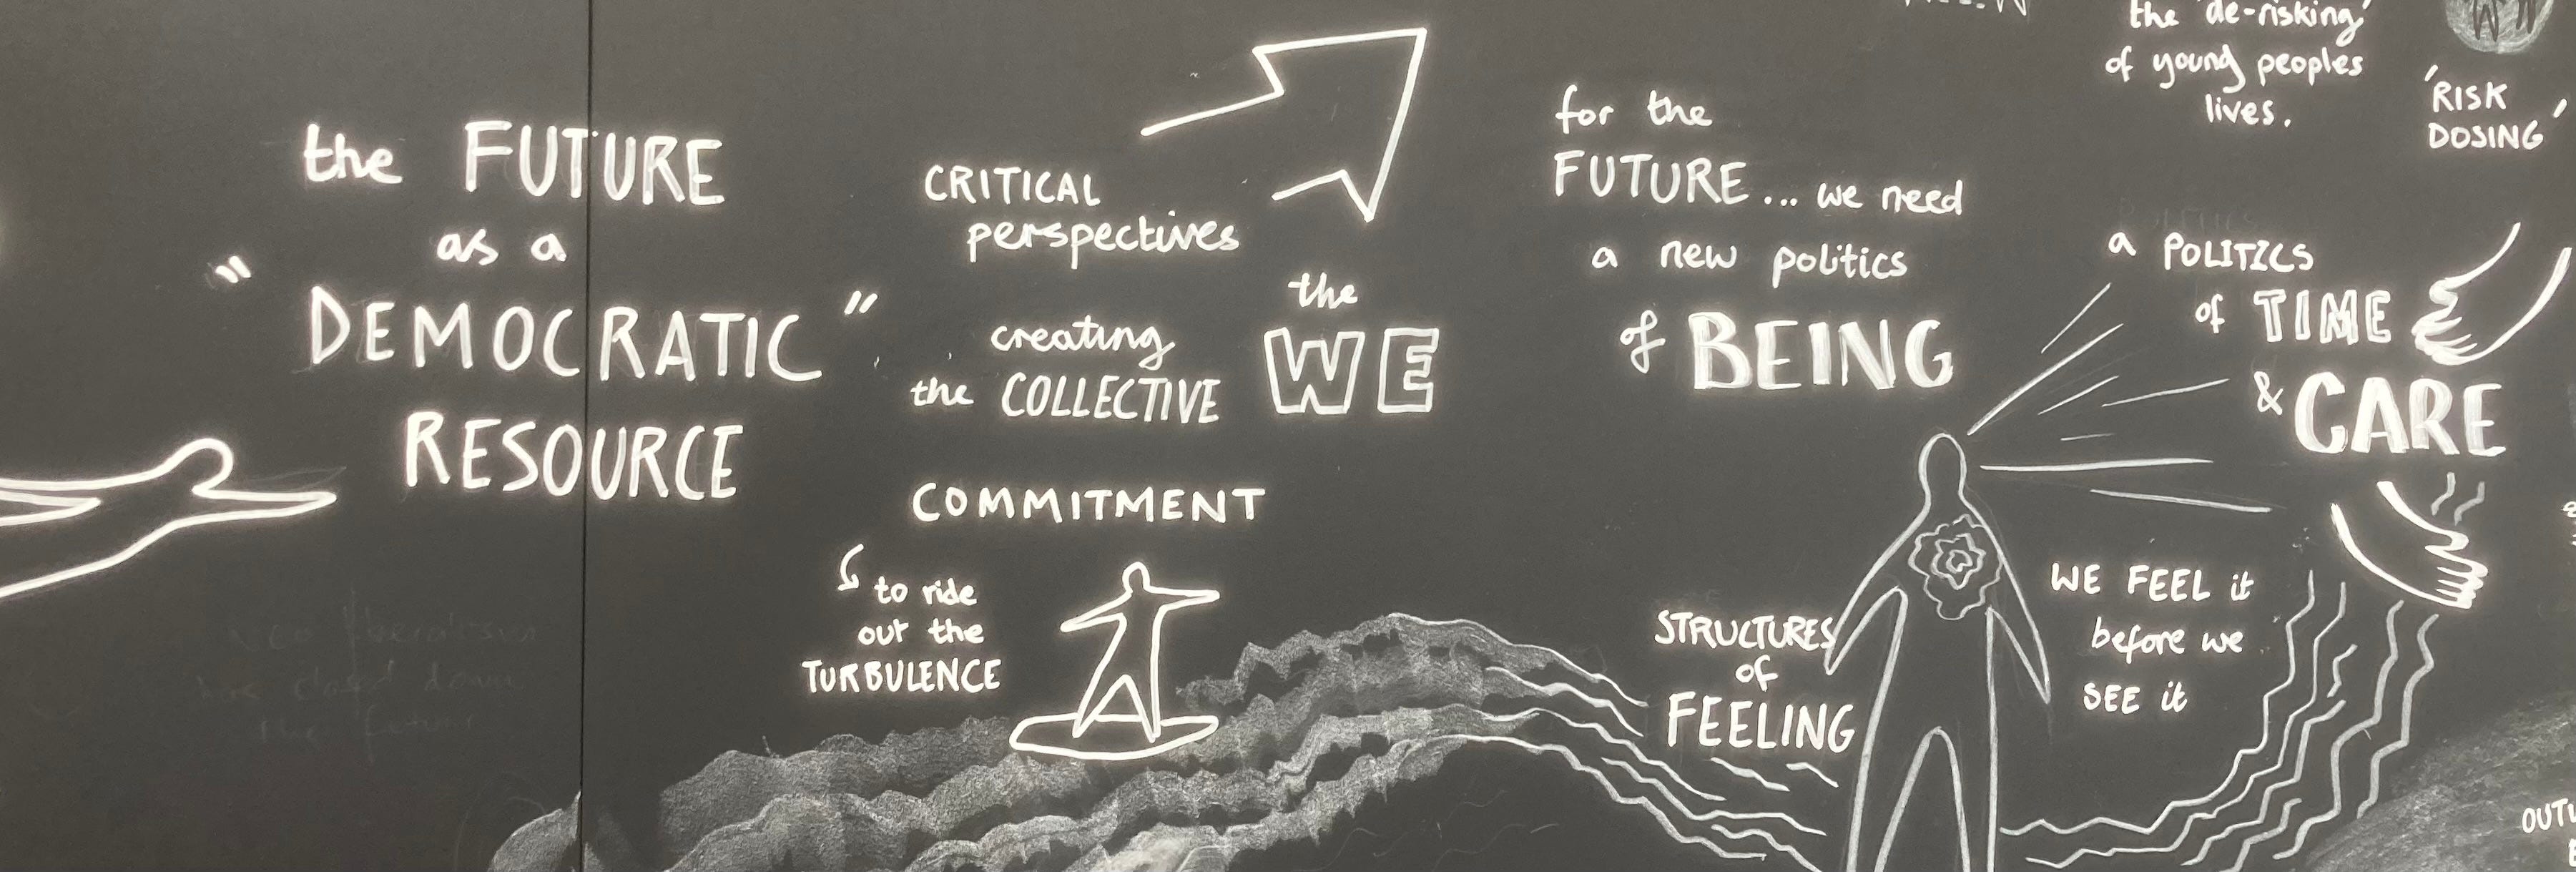 the FUTURE
as a
"DEMOCRATIC"
RESOURCE
CRITICAL
perspectives
creating
the COLLECTIVE
the
WE
COMMITMENT
to ride
out the
TURBULENCE
for the
FUTURE... we need
a new politics
of BEING
STRUCTURES
of
FEELING
WE FEEL it
before we
SEE it
the 'de-risking'
of young peoples
lives.
'RISK
DOSING'
a POLITICS
of TIME
& CARE